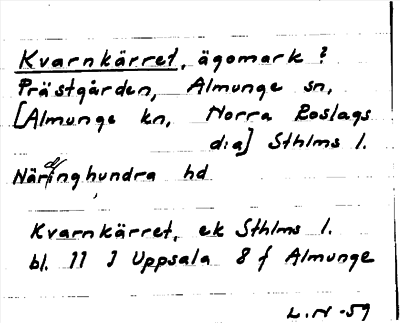 Kvarnkärret, ägomark ?
Prästgården, Almunge sn,
[Almunge kn, Norra Roslags
d:a] Sthlms l.
Närdinghundra hd
Kvarnkärret, ek Sthlms l.
bl. 11 I Uppsala 8 f Almunge
L.N -59